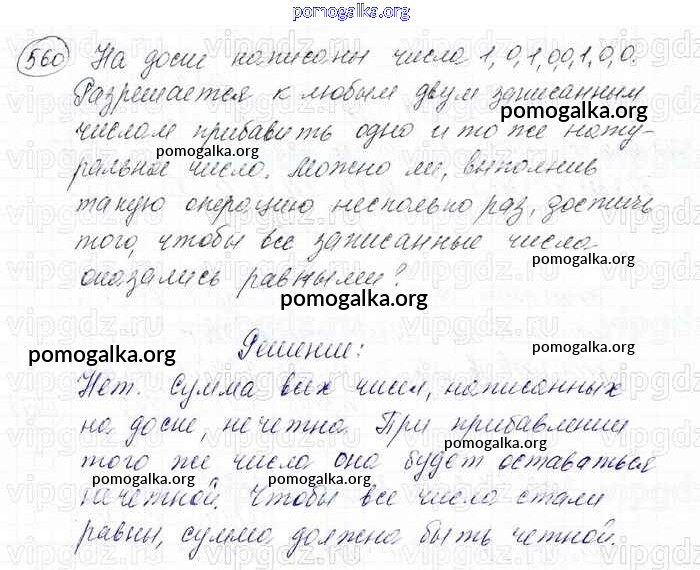 pomogalka.org
560 На доске написаны числа 1,0,1,0,0,1,0,0.
Разрешается к любым двум записанным
pomogalka.org
числам прибавить одно и то же нату-
pomogalka.org
ральное число. Можно ли, выполнив
pomogalka.org
такую операцию несколько раз, достичь
pomogalka.org
того, чтобы все записанные числа
оказались равными?
pomogalka.org
Решение:
pomogalka.org
pomogalka.org
Нет. Сумма всех чисел, написанных
на доске, нечетна. При прибавлении
pomogalka.org
того же числа она будет оставаться
pomogalka.org
нечетной. Чтобы все числа стали
pomogalka.org
равны, сумма должна быть четной.